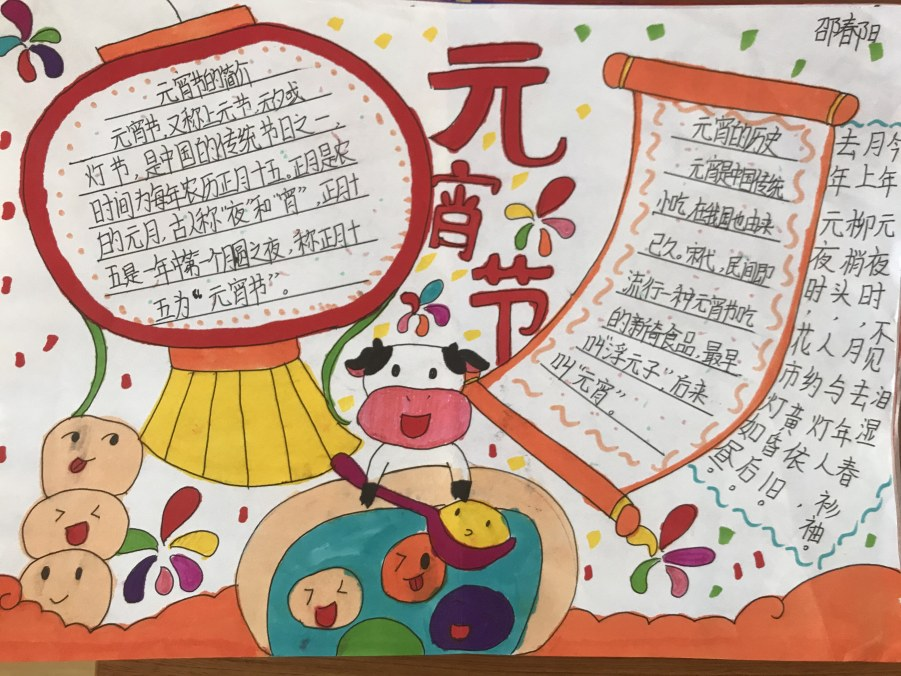 邵春阳
元宵节
元宵节的简介
元宵节,又称上元节,元夕或
灯节,是中国的传统节日之一,
时间为每年农历正月十五。正月是农
的元月,古人称“夜”和“宵”,正月十
五是一年中第一个月圆之夜,称正月十
五为“元宵节”。
元宵的历史
元宵是中国传统
小吃,在我国也由来
已久。宋代,民间即
流行一种元宵节吃
的新奇食品,最早
叫“浮元子”后来
叫“元宵”。
去年元夜时,花市灯如昼。
月上柳梢头,人约黄昏后。
今年元夜时,月与灯依旧。
不见去年人,泪湿春衫袖。